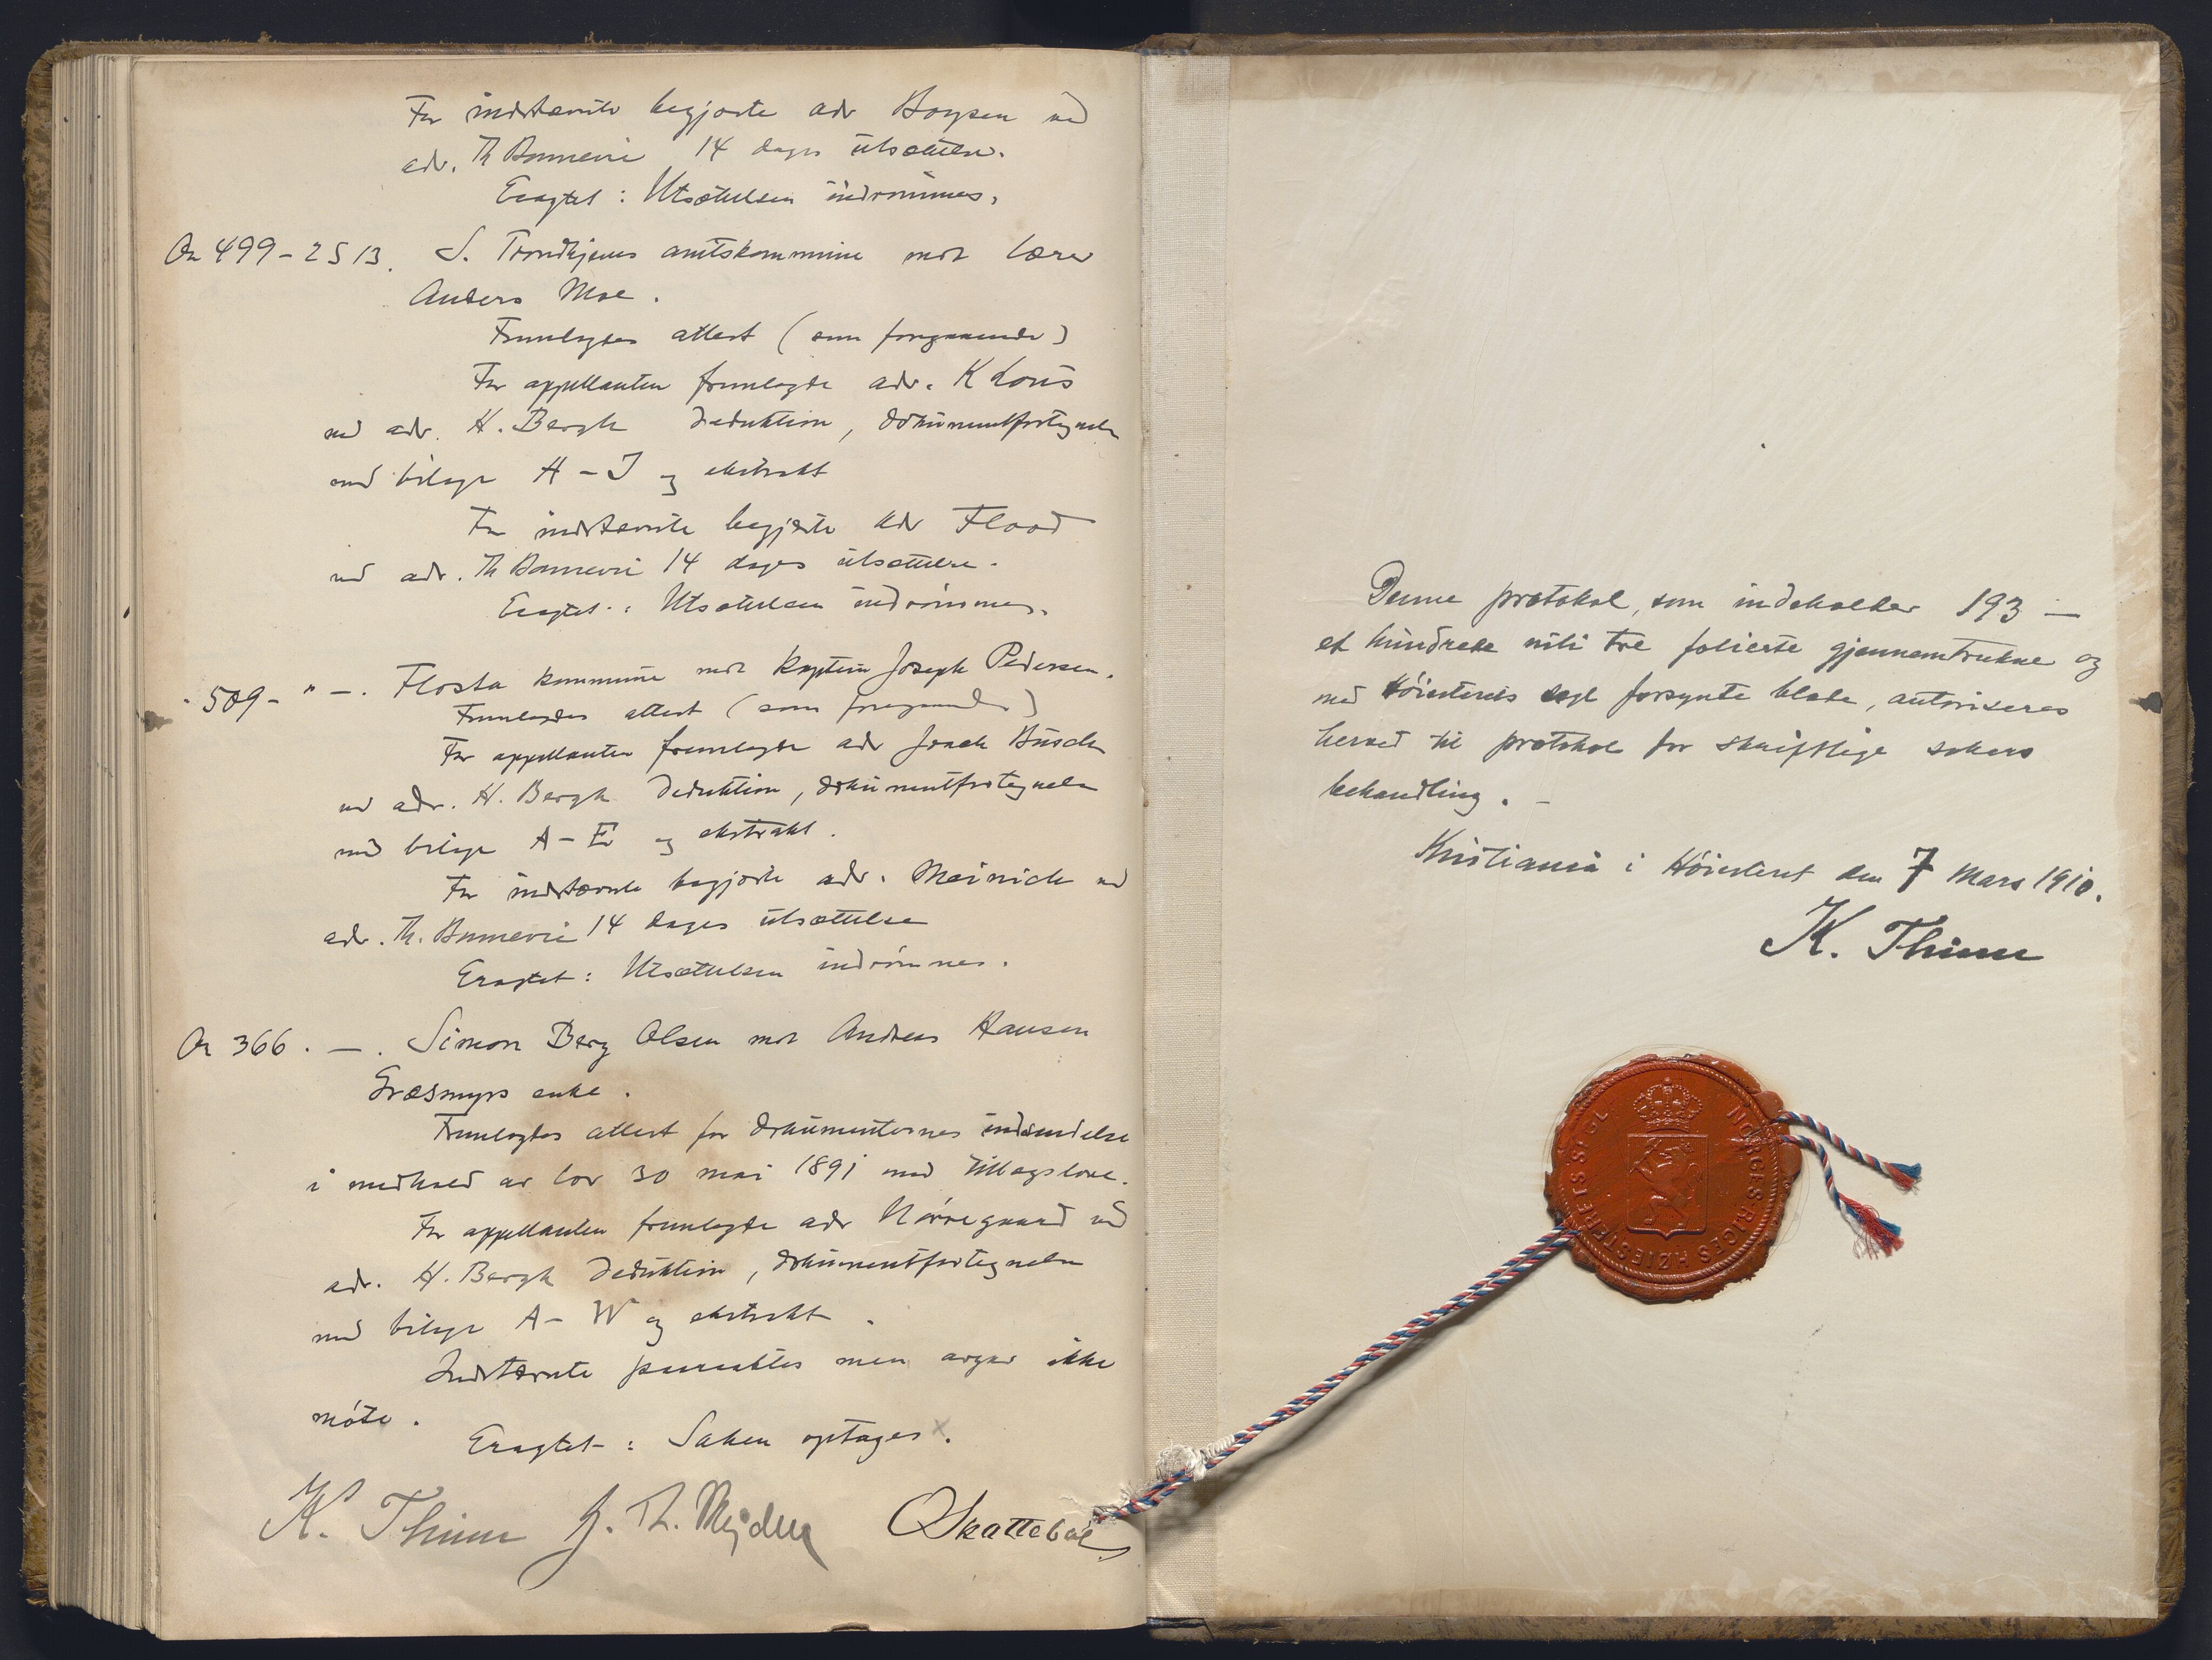 For indstævnte begjærte adv Boysen ved
adv. Th Bonnevie 14 dages utsættelse.
Eragtet: Utsættelsen indrømmes.
An 499 - 2 S 13. S. Trondhjems amtskommune mot lærer
Anders Moe.
Fremlagdes attest (som foregaaende)
For appellanten fremlagde adv. K Lous
ved adv. H. Bergh deduktion, dokumentfortegnelse
med bilage A - I og ekstrakt
For indstævnte begjærte adv Flood
ved adv. Th Bonnevie 14 dages utsættelse.
Eragtet: Utsættelsen indrømmes.
" 509 - " - . Flosta kommune mot kaptein Joseph Pedersen.
Fremlagdes attest (som foregaaende)
For appellanten fremlagde adv Busch
ved adv. H. Bergh deduktion, dokumentfortegnelse
med bilage A - E og ekstrakt.
For indstævnte begjærte adv. Meinich ved
adv. Th. Bonnevie 14 dages utsættelse
Eragtet: Utsættelsen indrømmes.
An 366 . - . Simon Berg Olsen mot Andreas Hansen
Græsmyrs enke.
Fremlagdes attest for dokumenternes indsendelse
i medhold av lov 30 mai 1891 med tillægslove.
For appellanten fremlagde adv Nørregaard ved
adv. H. Bergh deduktion, dokumentfortegnelse
med bilage A - W og ekstrakt.
Indstævnte paaraabtes men avgav ikke
møte.
Eragtet: Saken optages x.
K. Thinn J. Th. Mejdell O Skattebøl
Denne protokol, som indeholder 193 —
et hundrede nitti tre folierte gjennemtrukne og
med Høiesterets segl forsynte blade, autoriseres
herved til protokol for skriftlige sakers
behandling. —
Kristiania i Høiesteret den 7 Mars 1910.
K. Thinn
NORGES RIGES HØIESTERETS SEGL